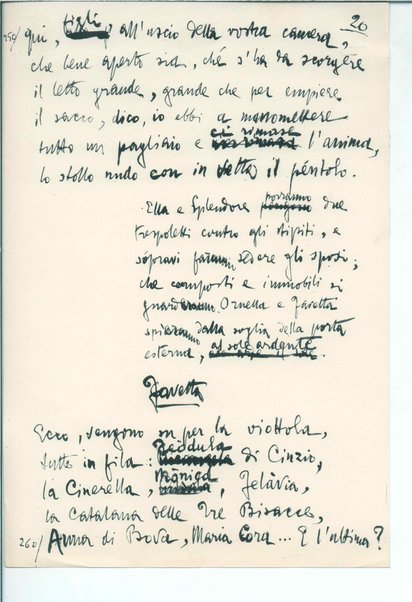 20
250/ qui, figli, all'uscio della vostra camera,
che bene aperto sia, ché s'ha da scorgere
il letto grande, grande che per empiere
il sacco, dico, io ebbi a manomettere
tutto un pagliaio e ci rimase l'anima,
lo stollo nudo con in vetta il péntolo.
Ella e Splendore porranno due
trespoletti contro gli stipiti, e
sópravi faranno sedere gli sposi;
che composti e immobili si
guarderanno. Ornella e Favetta
spieranno dalla soglia della porta
esterna, al sole ardente.
Favetta
Ecco, vengono su per la viottola,
tutte in fila: Teòdula di Cinzio,
la Cinerella, Mònica, Felàvia,
la Catalana delle Tre Bisacce,
260/ Anna di Bova, Maria Cora... E l'ultima?